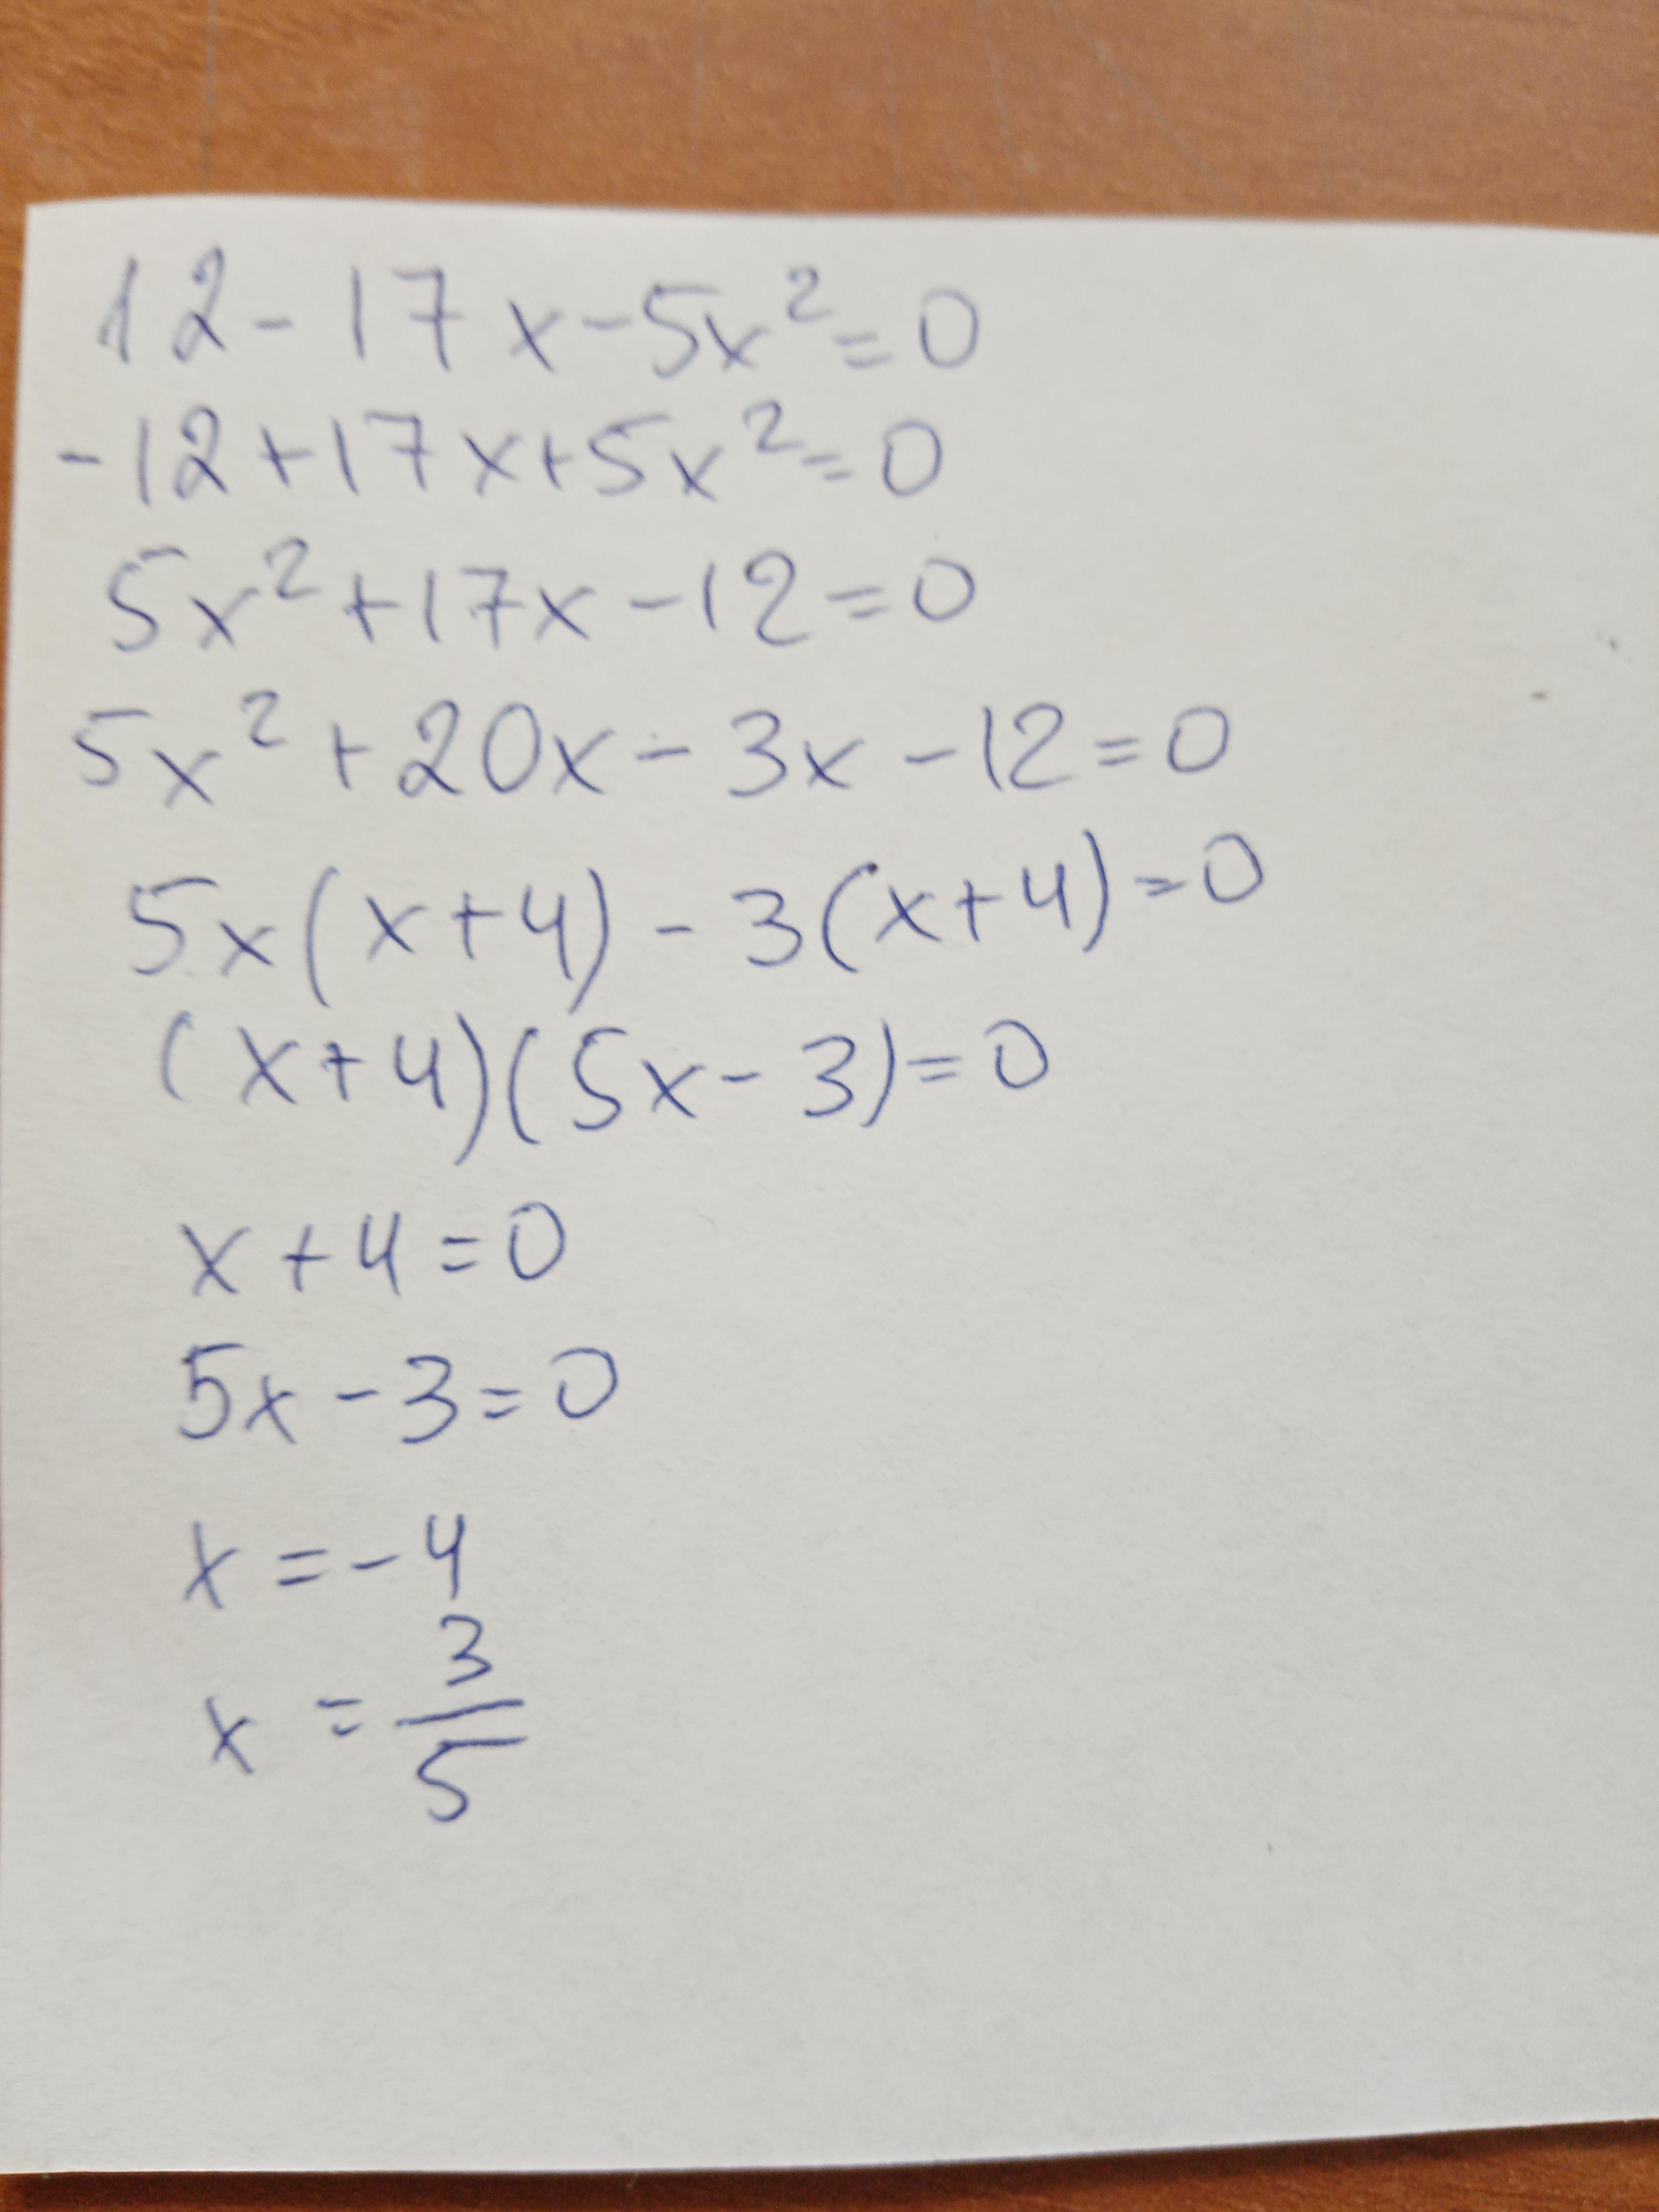 12-17x-5x²=0
-12+17x+5x²=0
5x²+17x-12=0
5x²+20x-3x-12=0
5x(x+4)-3(x+4)=0
(x+4)(5x-3)=0
x+4=0
5x-3=0
x=-4
x=3/5